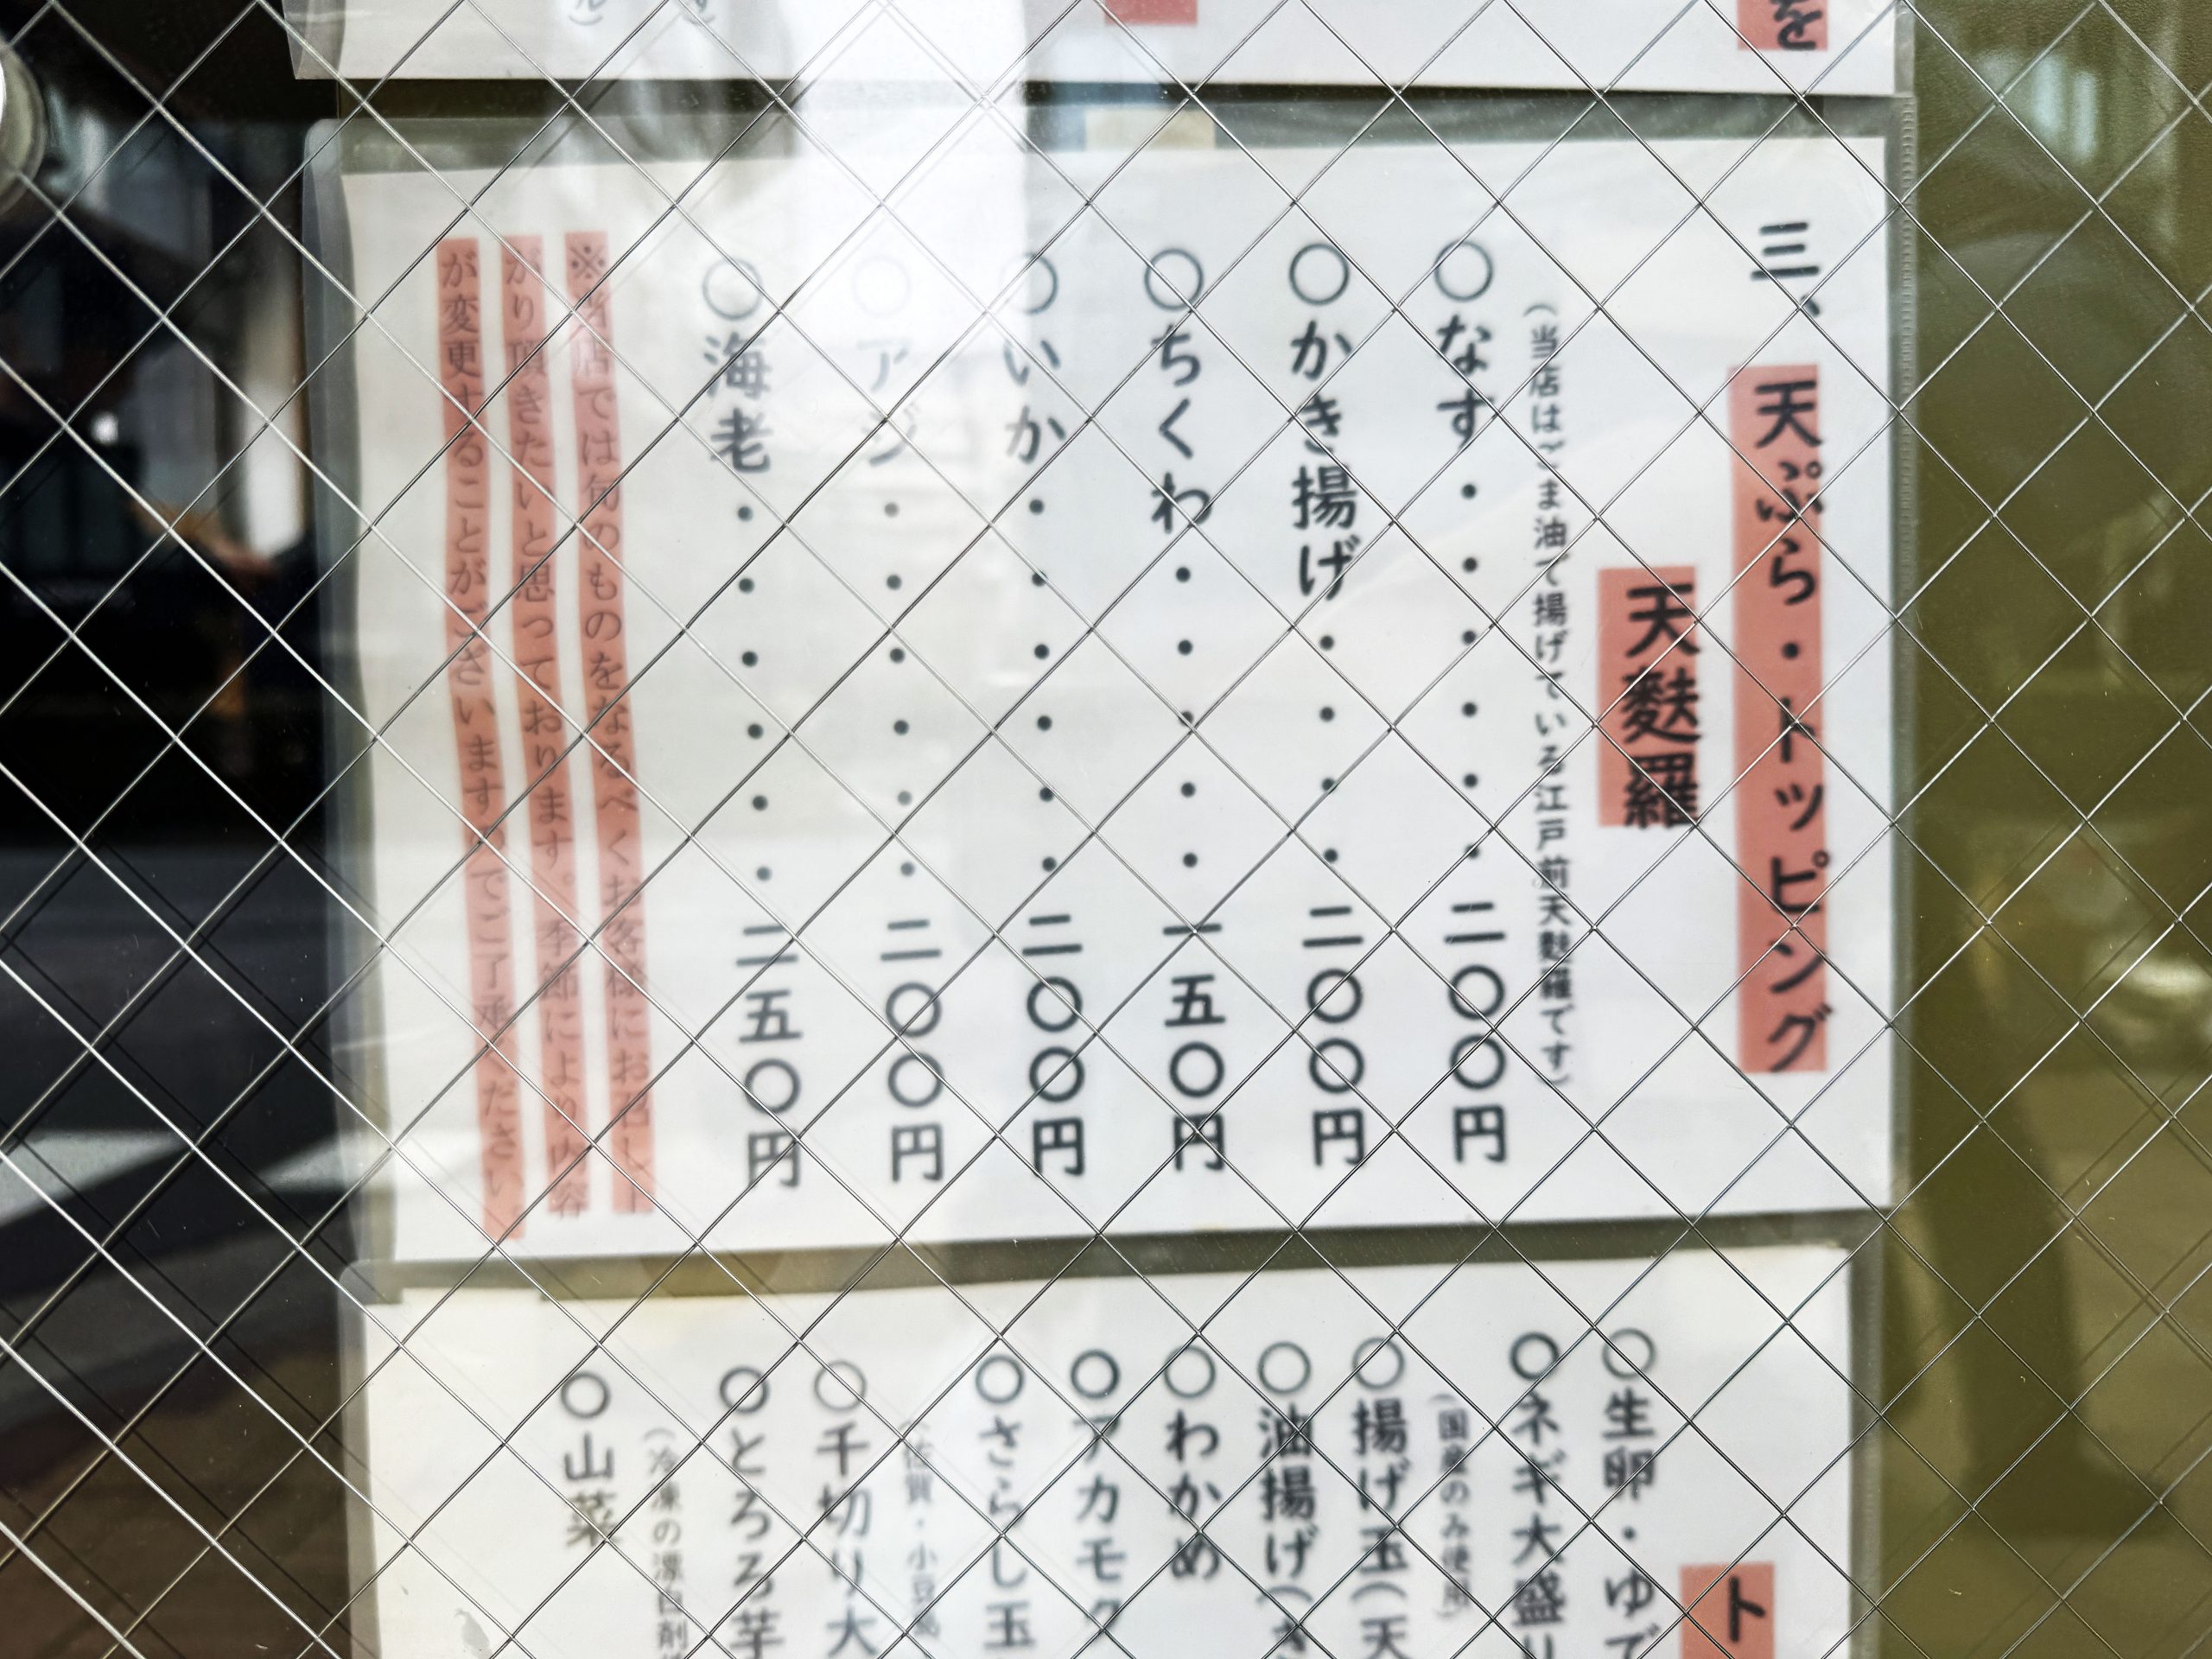 を
三、天ぷら・トッピング
天麩羅
(当店はごま油で揚げている江戸前天麩羅です)
○なす・・・・・・二〇〇円
○かき揚げ・・・・二〇〇円
○ちくわ・・・・・一五〇円
○いか・・・・・・二〇〇円
○アジ・・・・・・二〇〇円
○海老・・・・・・二五〇円
※当店では旬のものをなるべくお客様にお召し上
がり頂きたいと思っております。季節により内容
が変更することがございますのでご了承ください。
ト
○生卵・ゆで
○ネギ大盛り
(国産のみ使用)
○揚げ玉(天
○油揚げ(き
○わかめ
○アカモク
○さらし玉
(佐賀・小豆島
○千切り大
○とろろ芋
(冷凍の漂白剤
○山菜